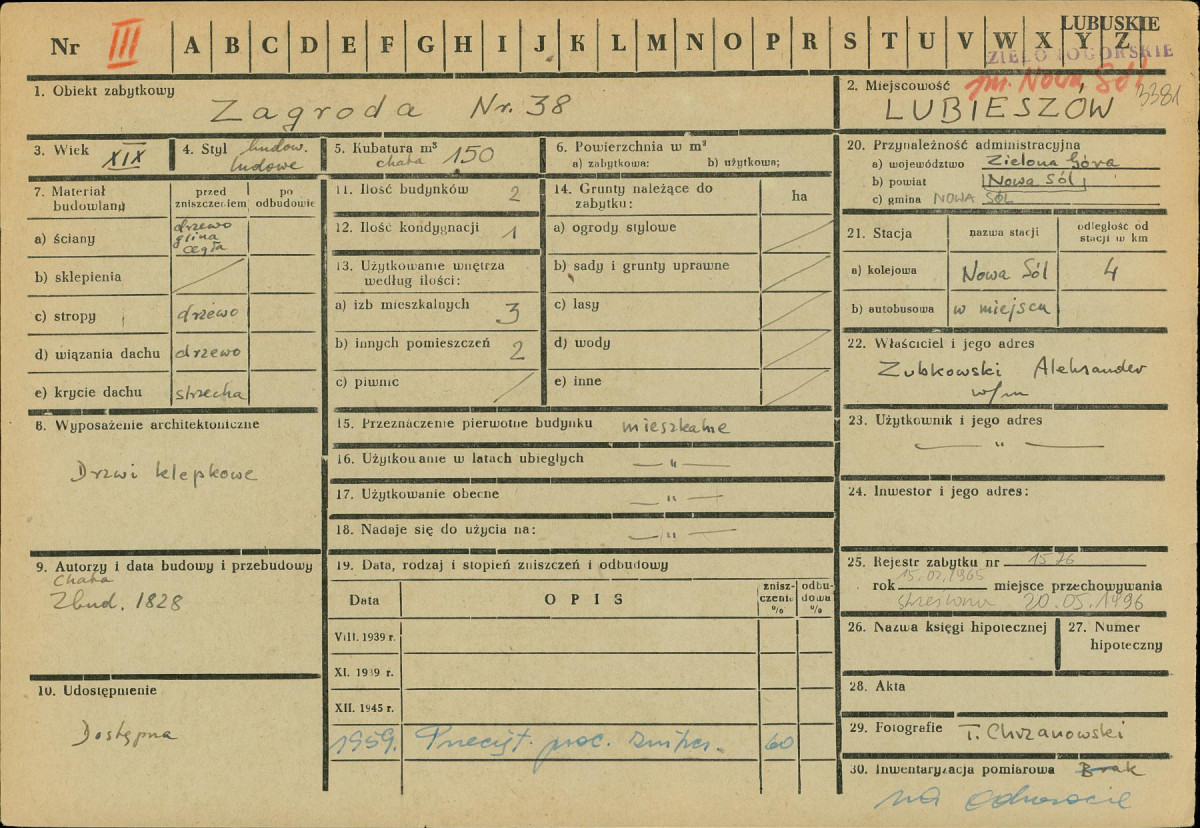 Nr III A B C D E F G H I J K L M N O P R S T U V W X Y Z
LUBUSKIE
ZIELONOGÓRSKIE
1. Obiekt zabytkowy
Zagroda Nr. 38
2. Miejscowość
m. Nowa Sól 3381
LUBIESZÓW
3. Wiek XIX
4. Styl budow. ludowe
5. Kubatura m³ chata 150
6. Powierzchnia w m²
a) zabytkowa: b) użytkowa;
7. Materiał budowlany
przed zniszczeniem
po odbudowie
a) ściany drzewo glina cegła
b) sklepienia
c) stropy drzewo
d) wiązania dachu drzewo
e) krycie dachu strzecha
8. Wyposażenie architektoniczne
Drzwi klepkowe
9. Autorzy i data budowy i przebudowy
chata
Zbud. 1828
10. Udostępnienie
Dostępna
11. Ilość budynków 2
12. Ilość kondygnacji 1
13. Użytkowanie wnętrza według ilości:
a) izb mieszkalnych 3
b) innych pomieszczeń 2
c) piwnic
14. Grunty należące do zabytku:
ha
a) ogrody stylowe
b) sady i grunty uprawne
c) lasy
d) wody
e) inne
15. Przeznaczenie pierwotne budynku mieszkalne
16. Użytkowanie w latach ubiegłych — " —
17. Użytkowanie obecne — " —
18. Nadaje się do użycia na: — " —
19. Data, rodzaj i stopień zniszczeń i odbudowy
Data OPIS zniszczenie % odbudowa %
VIII. 1939 r.
XI. 1939 r.
XII. 1945 r.
1959. Przecięt. proc. zniszcz. 60
20. Przynależność administracyjna
a) województwo Zielona Góra
b) powiat Nowa Sól
c) gmina NOWA SÓL
21. Stacja
nazwa stacji
odległość od stacji w km
a) kolejowa Nowa Sól 4
b) autobusowa w miejscu
22. Właściciel i jego adres
Zubkowski Aleksander
w/m
23. Użytkownik i jego adres
— " —
24. Inwestor i jego adres:
25. Rejestr zabytku nr 1576
rok 15.02.1965 miejsce przechowywania
skreślono 20.05.1996
26. Nazwa księgi hipotecznej
27. Numer hipoteczny
28. Akta
29. Fotografie T. Chrzanowski
30. Inwentaryzacja pomiarowa Brak
na odwrocie